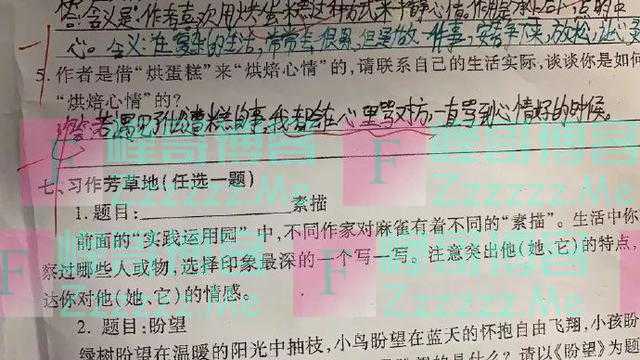 答:含义是:作者喜欢用烘蛋糕这种方式来平静心情。
心。含义:在复杂的生活,常常
5.作者是借“烘蛋糕”来“烘焙心情”的,请联系自己的生活实际,谈谈你是如何
“烘焙心情”的?
答:若遇见了什么糟糕的事,我都会在心里骂对方一直骂到心情好的时候。
峰哥博客
Zzzzzz.Me
F
峰哥博客
Zzzzzz.Me
七、习作芳草地(任选一题)
1.题目:____________素描
前面的“实践运用园”中,不同作家对麻雀有着不同的“素描”。生活中你
察过哪些人或物,选择印象最深的一个写一写。注意突出他(她、它)的特点,
达你对他(她、它)的情感。
Zzzzzz.Me
F
Zzzzzz.Me
2.题目:盼望
绿树盼望在温暖的阳光中抽枝,小鸟盼望在蓝天的怀抱自由飞翔,小孩盼
的是什么?请以《盼望》为题